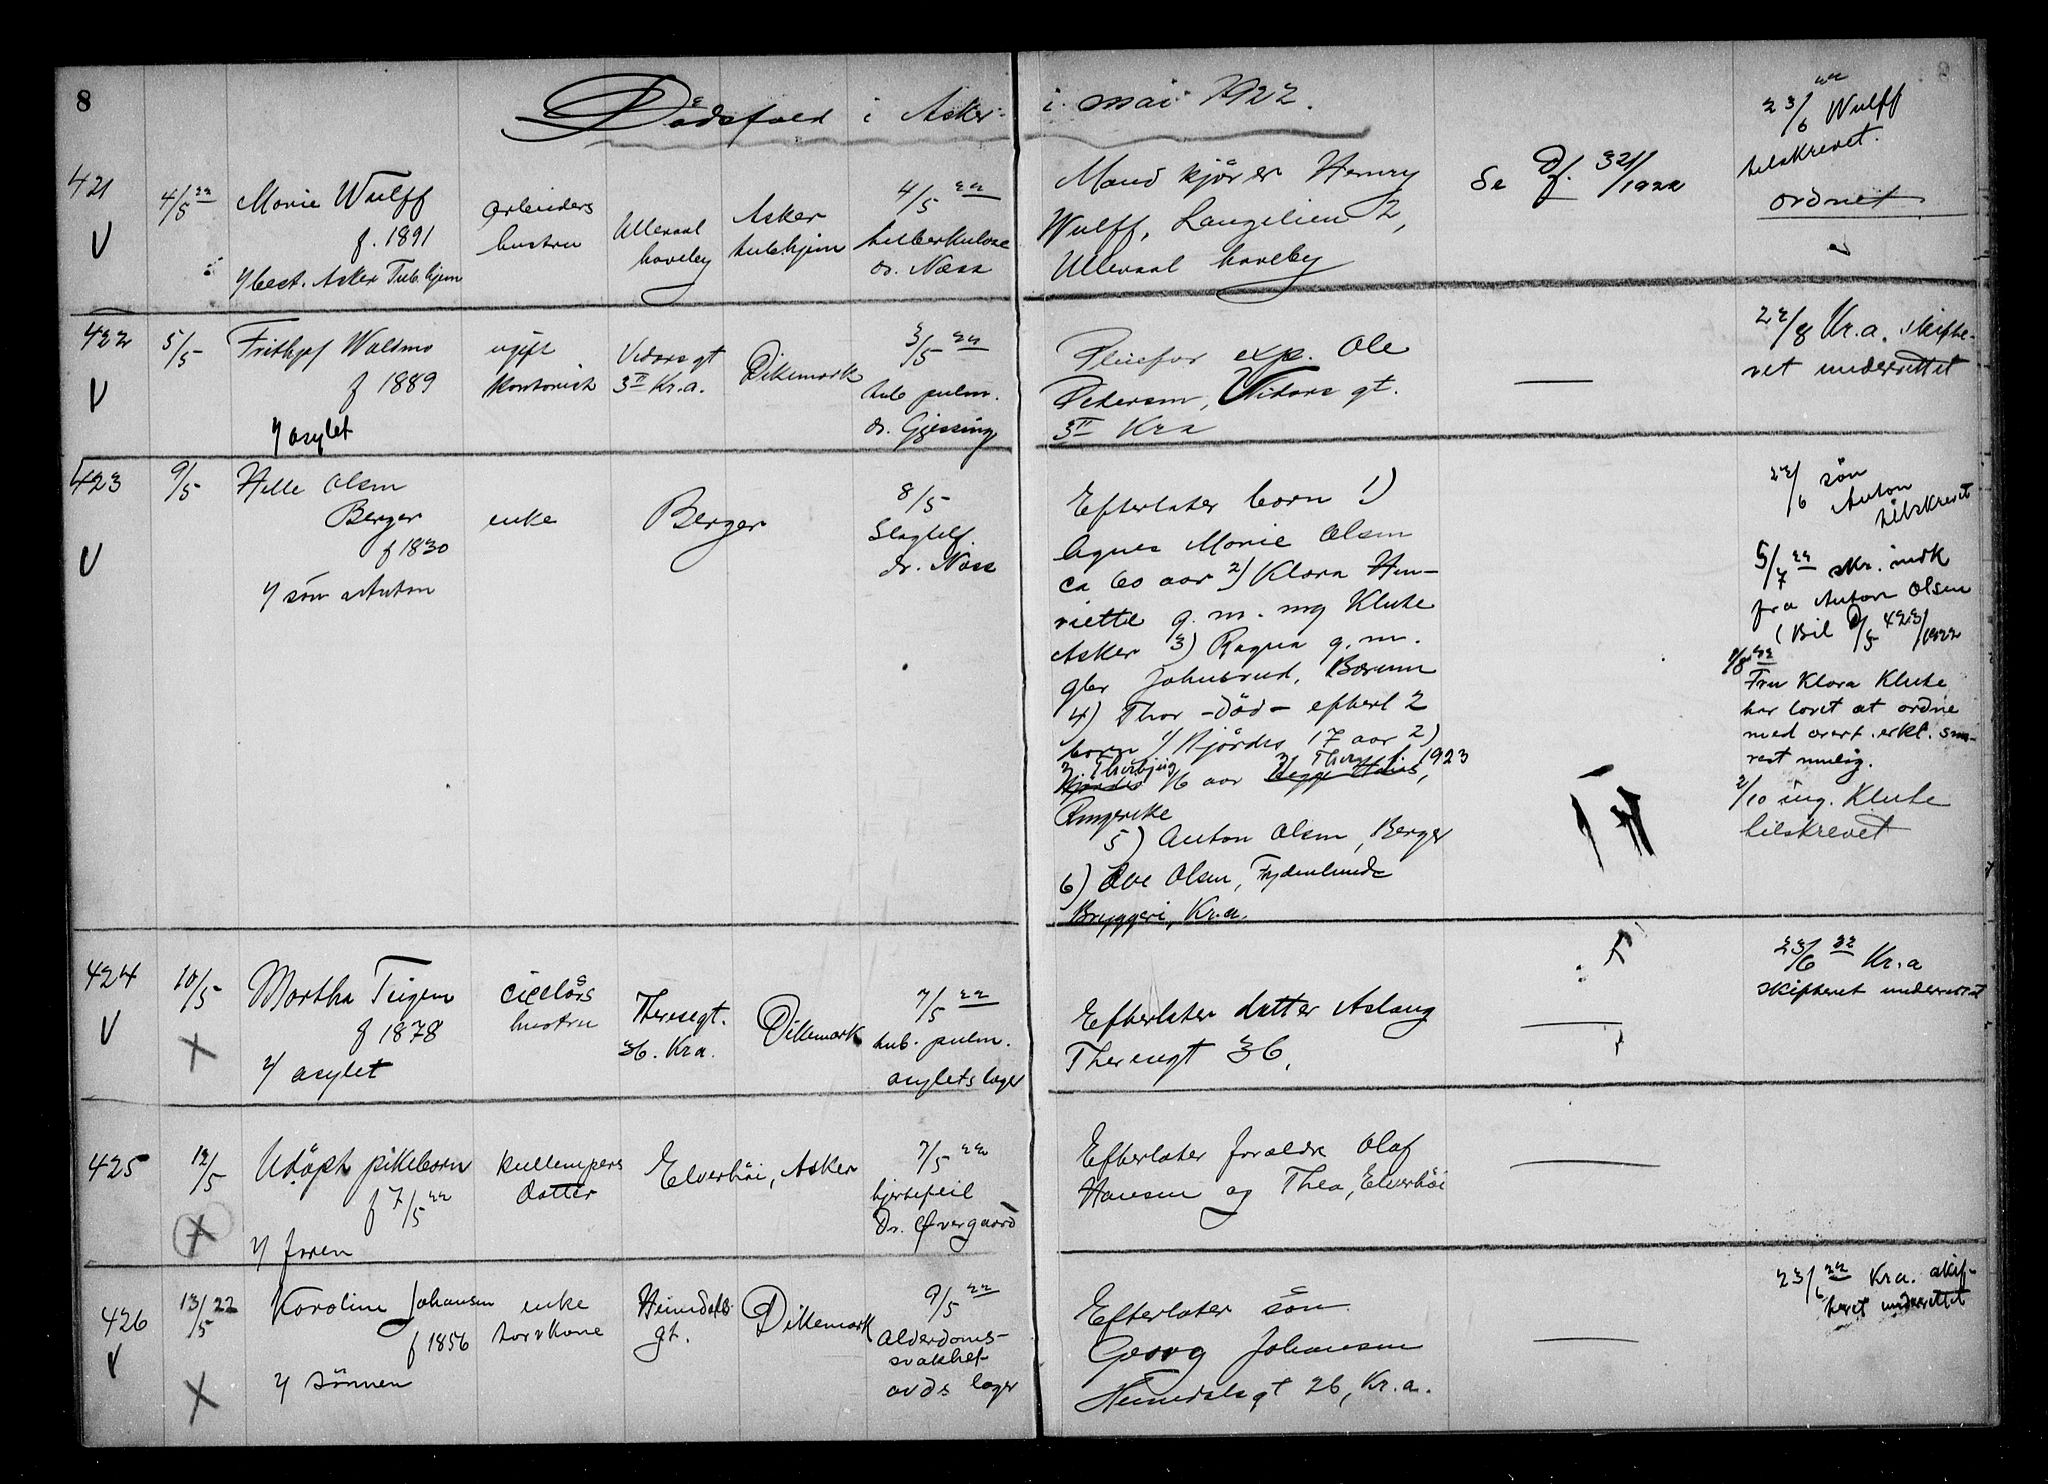 8
Dödsfald i Asker i mai 1922.
421
4/5 22
Marie Wulff
f. 1891
V/ best. Asker Tub.hjem
arbeiders
hustru
Ullevaal
haveby
Asker
tub.hjem
4/5 22
tuberkulose
dr. Næss
Mand kjører Henry
Wulff, Langelien 2,
Ullevaal haveby
Se Df. 321/1922
23/6 22 Wulff
tilskrevet.
ordnet
422
V
5/5
Frithjof Waldmo
f 1889
V/ asylet
ugift
kontorist
Vidars gt
3 II Kr.a.
Dikemark
3/5 22
tub pulm.
dr. Gjessing
Pleiefar exp. Ole
Pedersen, Vidars gt.
3 II Kra
—
22/8 Kr.a. skifte-
ret underrettet
423
V
9/5
Helle Olsen
Berger
f 1830
V/ søn Anton
enke
Berger
8/5
Slagtilf.
dr. Næss
Efterlater børn 1)
Agnes Marie Olsen
ca 60 aar 2) Klara Hen-
riette g. m. ing Klute
Asker 3) Ragna g. m.
gbr Johnsrud, Bærum
4) Thor - död - efterl 2
børn 1/ Hjördis 17 aar 2)
2 Thorbjørg 3, Thor f. 1923
Hjørdis 16 aar begge Hønes,
Ringerike
5) Anton Olsen, Berger
6) Ole Olsen, Frydenlunds
Bryggeri, Kr.a.
22/6 søn
Anton
tilskrevet
5/7 22 skr. indk
fra Anton Olsen
(Bil D/5 423/1922
9/8 22
Fru Klara Klute
har lovet at ordne
med overt. erkl. sna-
rest mulig.
2/10 ing. Klute
tilskrevet
424
V
10/5
X
Martha Teigen
f 1878
V/ asylet
ciselørs
hustru
Theresegt.
36. Kra.
Dikemark
7/5 22
tub. pulm.
asylets læge
Efterlater datter Aslaug
Theresegt 36.
—
23/6 22 Kr.a
skifteret underrettet
425
12/5
X
Udöpt pikebarn
f 7/5 22
V/ faren
kullempers
datter
Elverhöi, Asker
7/5 22
hjertefeil
Dr. Øvergaard
Efterlater forældre Olaf
Hansen og Thea, Elverhöi
—
426
V
13/5 22
X
Karoline Johansen
f 1856
V/ sönnen
enke
torvkone
Heimdals-
gt.
Dikemark
9/5 22
Alderdoms-
svakhet
avds læge
Efterlater søn
Georg Johansen
Heimdalsgt 26, Kr.a.
—
23/6 22 Kra. skif-
teret underrettet